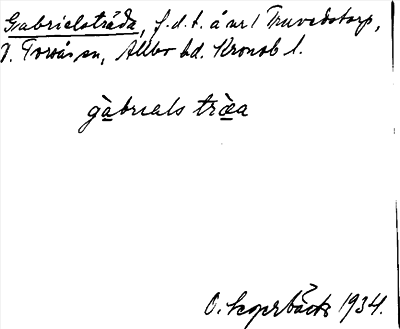 Gabrielsträda, f.d.t. å nr 1 Truvedstorp,
V. Torsås sn, Allbo hd. Kronob l.
gàbriels træ̀a
O. Koperbäck 1934.